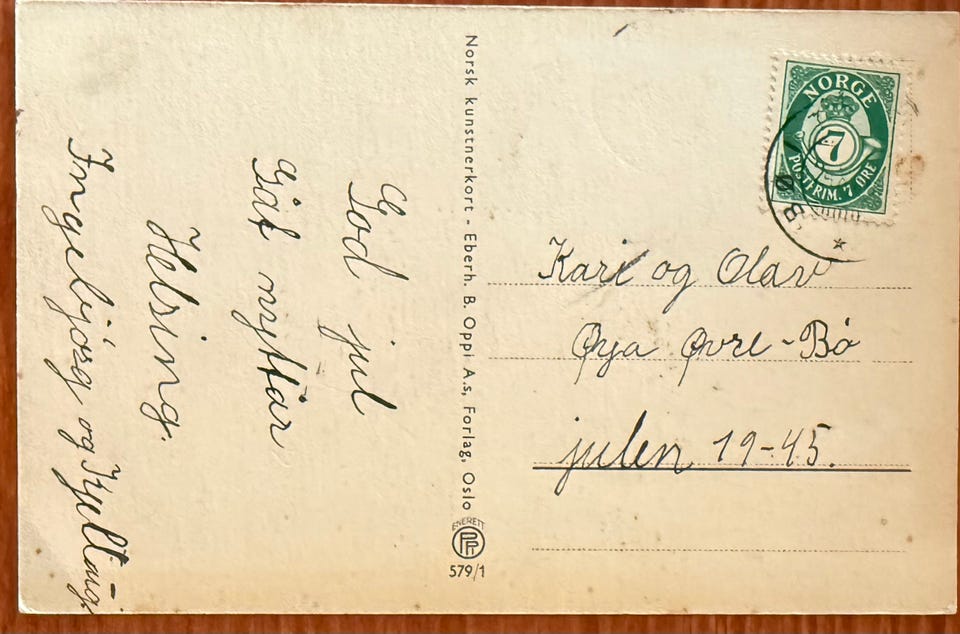 God jul
Gåt nyttår
Helsing.
Ingebjørg og Kjellaug.
Norsk kunstnerkort - Eberh. B. Oppi A.s, Forlag, Oslo
ENERETT
579/1
NORGE
7
POSTFRIM. 7 ØRE
BØ
Kari og Olav
Øya Øvre-Bø
julen 19-45.